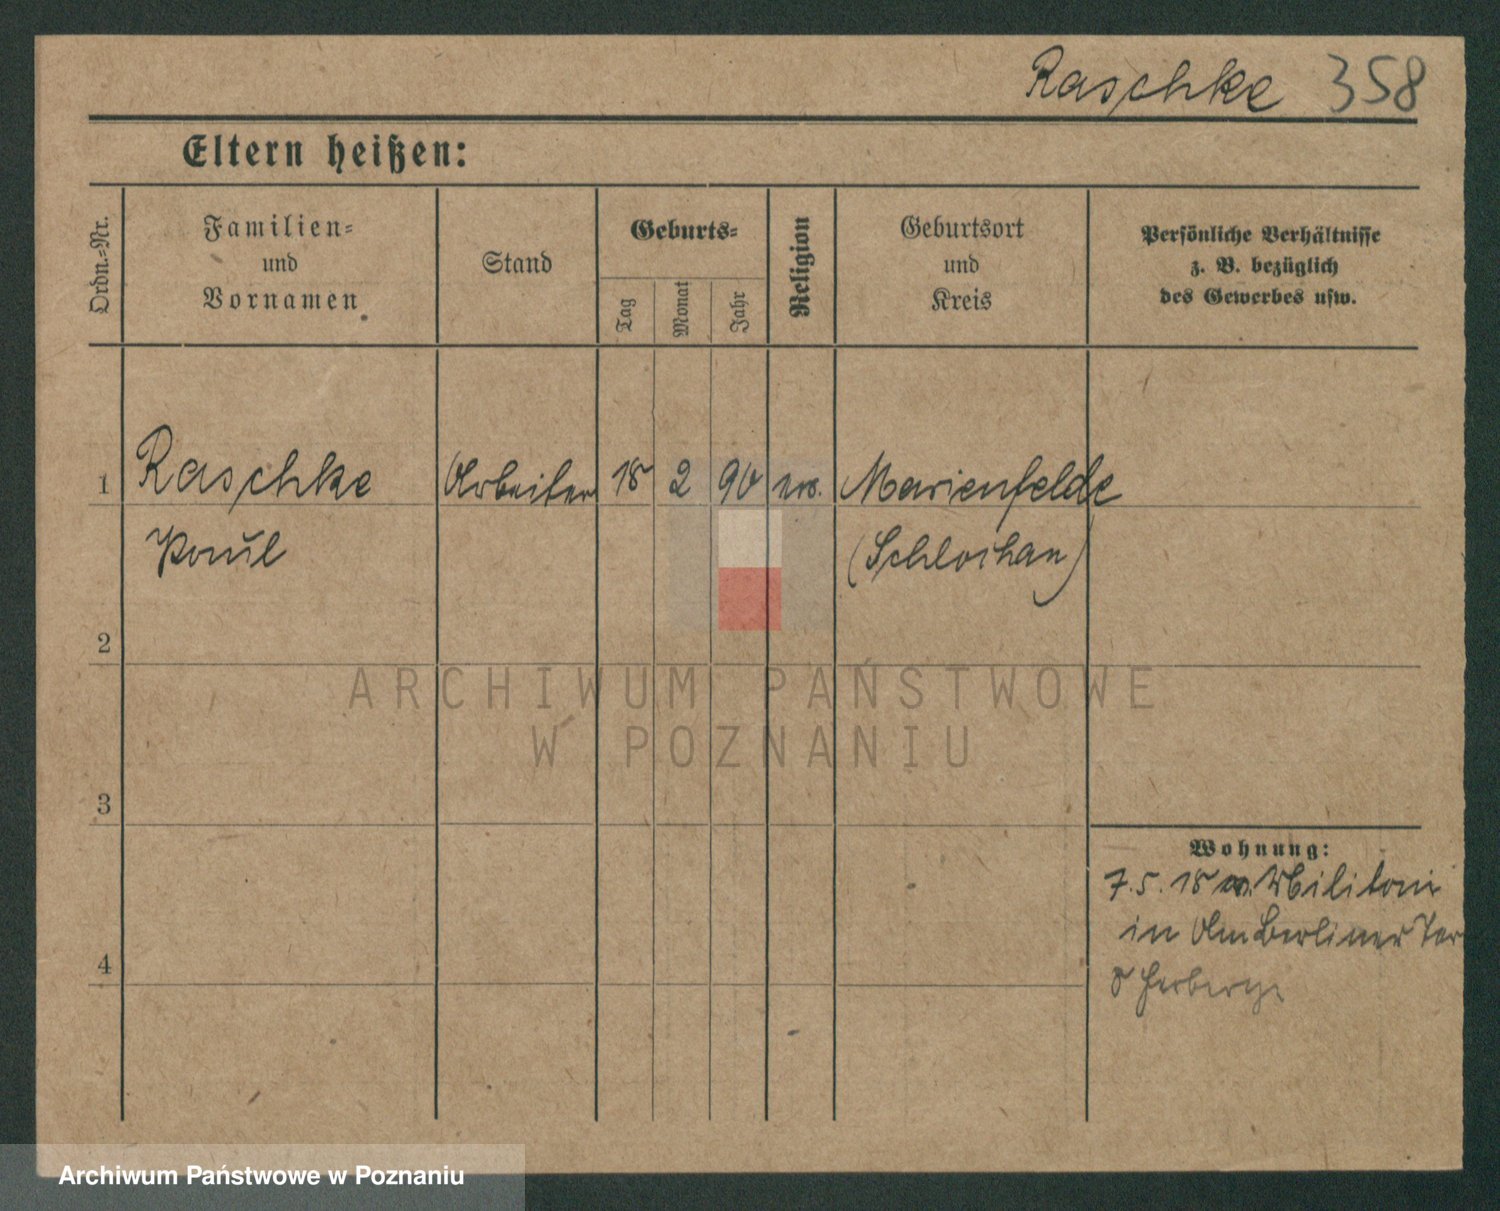 Raschke 358
Eltern heißen:
Ordn.-Nr.
Familien-
und
Vornamen
Stand
Geburts-
Tag
Monat
Jahr
Religion
Geburtsort
und
Kreis
Persönliche Verhältnisse
z. B. bezüglich
des Gewerbes usw.
1 Raschke Arbeiter 18 2 90 Marienfelde
Paul (Schlochau)
2
ARCHIWUM PAŃSTWOWE
W POZNANIU
3
Wohnung:
7.5.18 v. Militair
in Am Berliner Tor
4
8 Herberge
Archiwum Państwowe w Poznaniu